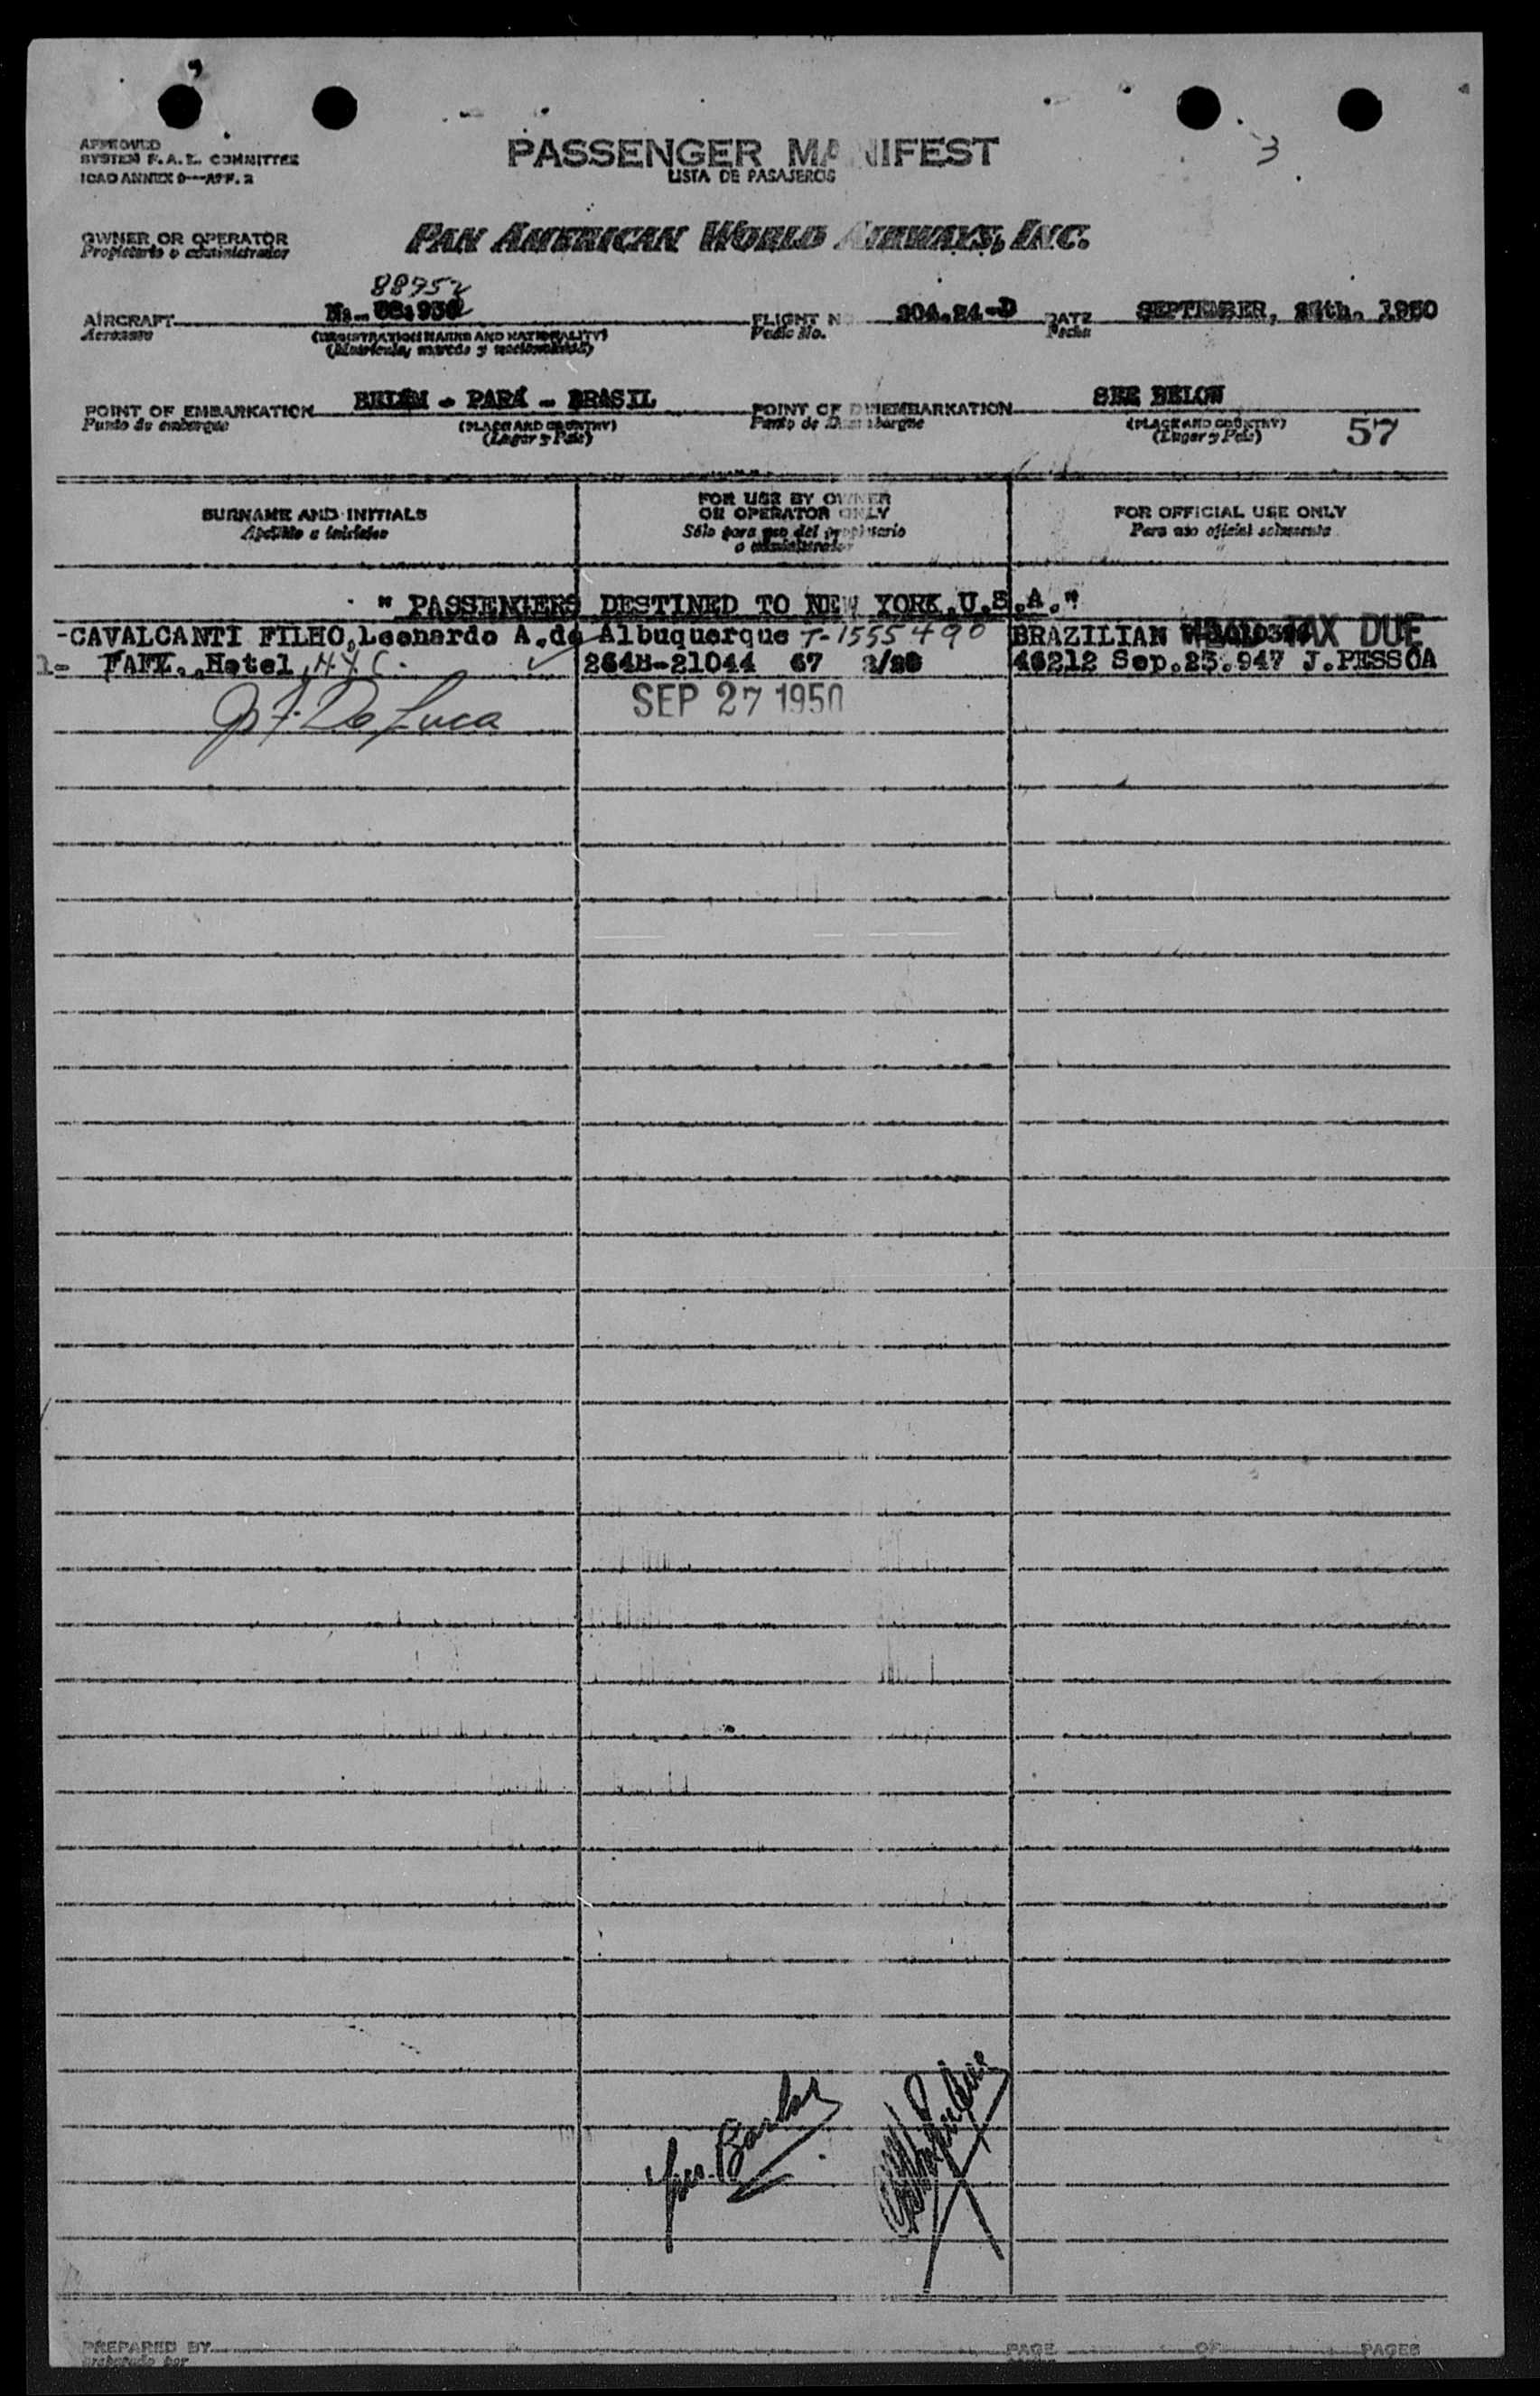 APPROVED
SYSTEM F.A.L. COMMITTEE
ICAO ANNEX 9—APP. 2
PASSENGER MANIFEST
LISTA DE PASAJEROS
3
OWNER OR OPERATOR
Propietario o administrador
PAN AMERICAN WORLD AIRWAYS, INC.
88952
AIRCRAFT
Aeronave
(REGISTRATION MARKS AND NATIONALITY)
(Matrícula, marcas y nacionalidad)
FLIGHT NO. 204.24-D
Vuelo No.
DATE SEPTEMBER, 1950
Fecha
POINT OF EMBARKATION BELÉM - PARÁ - BRASIL
Punto de embarque
(PLACE AND COUNTRY)
(Lugar y País)
POINT OF DISEMBARKATION SEE BELOW
Punto de Desembarque
(PLACE AND COUNTRY)
(Lugar y País)
57
SURNAME AND INITIALS
Apellido e iniciales
FOR USE BY OWNER
OR OPERATOR ONLY
Sólo para uso del propietario
o administrador
FOR OFFICIAL USE ONLY
Para uso oficial solamente
" PASSENGERS DESTINED TO NEW YORK,U.S.A."
-CAVALCANTI FILHO,Leonardo A.de Albuquerque T-1555490 BRAZILIAN TAX DUE
1- Hotel, NYC. 264B-21044 67 46212 Sep.23.947 J.PESSOA
De Luca
SEP 27 1950
PREPARED BY
preparado por
PAGE OF PAGES